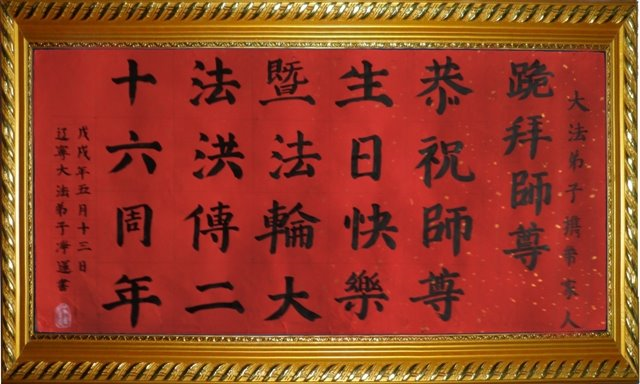 大法弟子攜帶家人
跪拜師尊
恭祝師尊
生日快樂
暨法輪大
法洪傳二
十六周年
戊戌年五月十三日
辽寧大法弟子淨蓮書